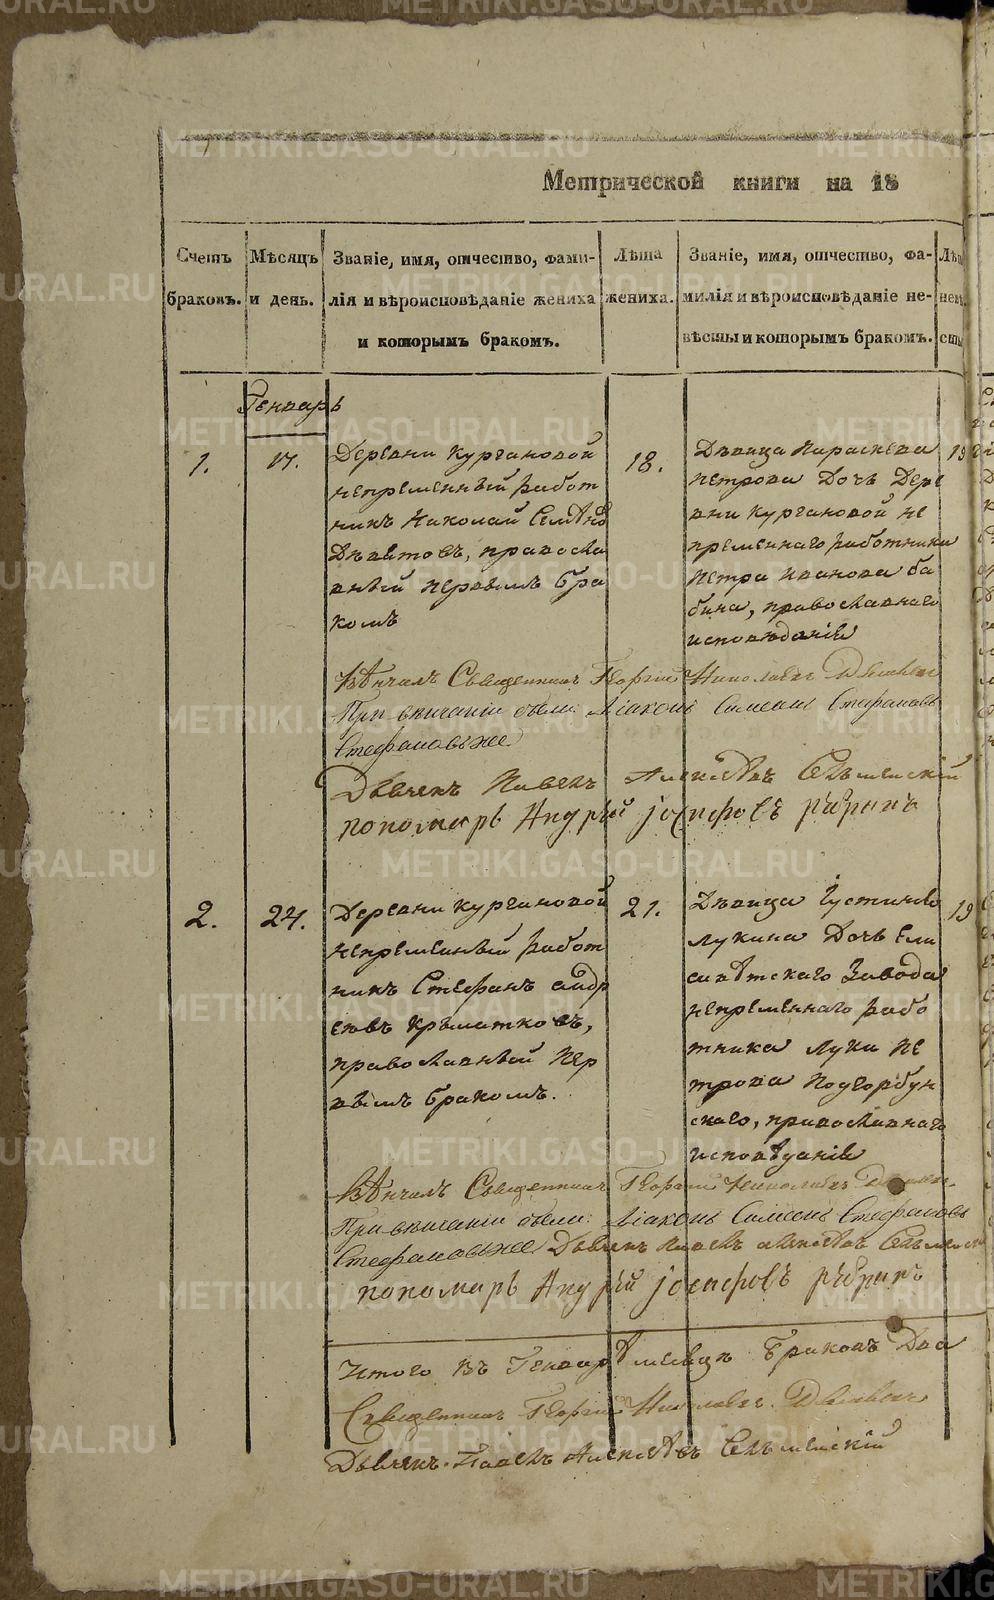 Метрической книги на 18
Счетъ браковъ.
Мѣсяцъ и день.
Званіе, имя, отчество, фами-
лія и вѣроисповѣданіе жениха
и которымъ бракомъ.
Лѣта жениха.
Званіе, имя, отчество, фа-
милія и вѣроисповѣданіе не-
вѣсты и которымъ бракомъ.
Генварь
1.
17.
Деревни Кургановой
непременный работ
никъ Николай Семіоно
Девятовъ, правосла
вный первымъ бра
комъ
18.
Дѣвица Параскева
Петрова дочь Дере
вни Кургановой не
пременнаго работника
Петра Иванова Ба
бина, православнаго
исповѣданія
19
Вѣнчалъ Священникъ Георгій Николаевъ
При вѣнчаніи были: Діаконъ Симеонъ Стефановъ
Стефановъ же
Дьячекъ Павелъ Алексѣевъ
пономарь Андрѣй Іосифовъ
2.
24.
Деревни Кургановой
непременный работ
никъ Стефанъ Андр
еевъ Крылатковъ,
православный пер
вымъ бракомъ.
21.
Дѣвица Густинія
Лукина дочь Ели
саветскаго Завода
непременнаго рабо
тника Луки Пе
трова Подгорбун
скаго, православнаго
исповѣданія
19
Вѣнчалъ Священникъ Георгій Николаевъ
При вѣнчаніи были: Діаконъ Симеонъ Стефановъ
Стефановъ же Дьячекъ Павелъ Алексѣевъ
пономарь Андрѣй Іосифовъ
Итого въ Генварѣ месяцѣ браковъ два
Священникъ Георгій Николаевъ
Дьячекъ Павелъ Алексѣевъ
METRIKI.GASO-URAL.RU